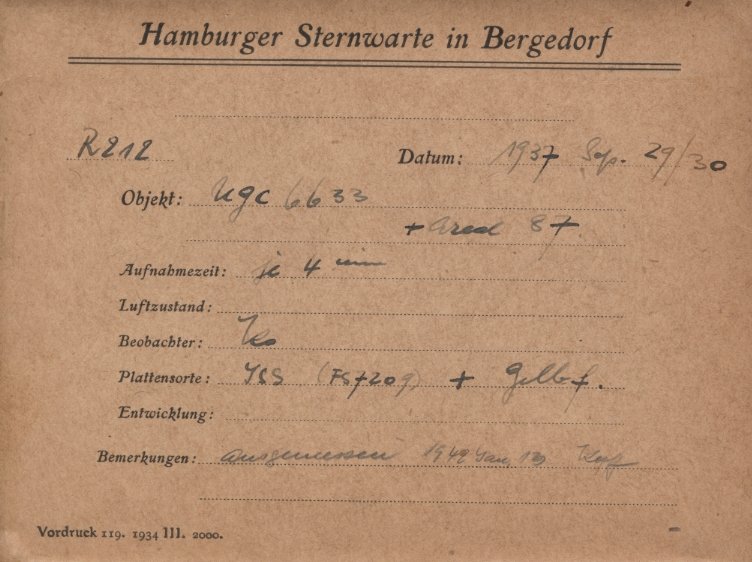 Hamburger Sternwarte in Bergedorf
R212
Datum: 1937 Sep. 29/30
Objekt: NGC 6633
+ 87.
Aufnahmezeit: je 4 min
Luftzustand:
Beobachter:
Plattensorte: + Gelbf.
Entwicklung:
Bemerkungen: ausgemessen 1949 Jan.
Vordruck 119. 1934 III. 2000.